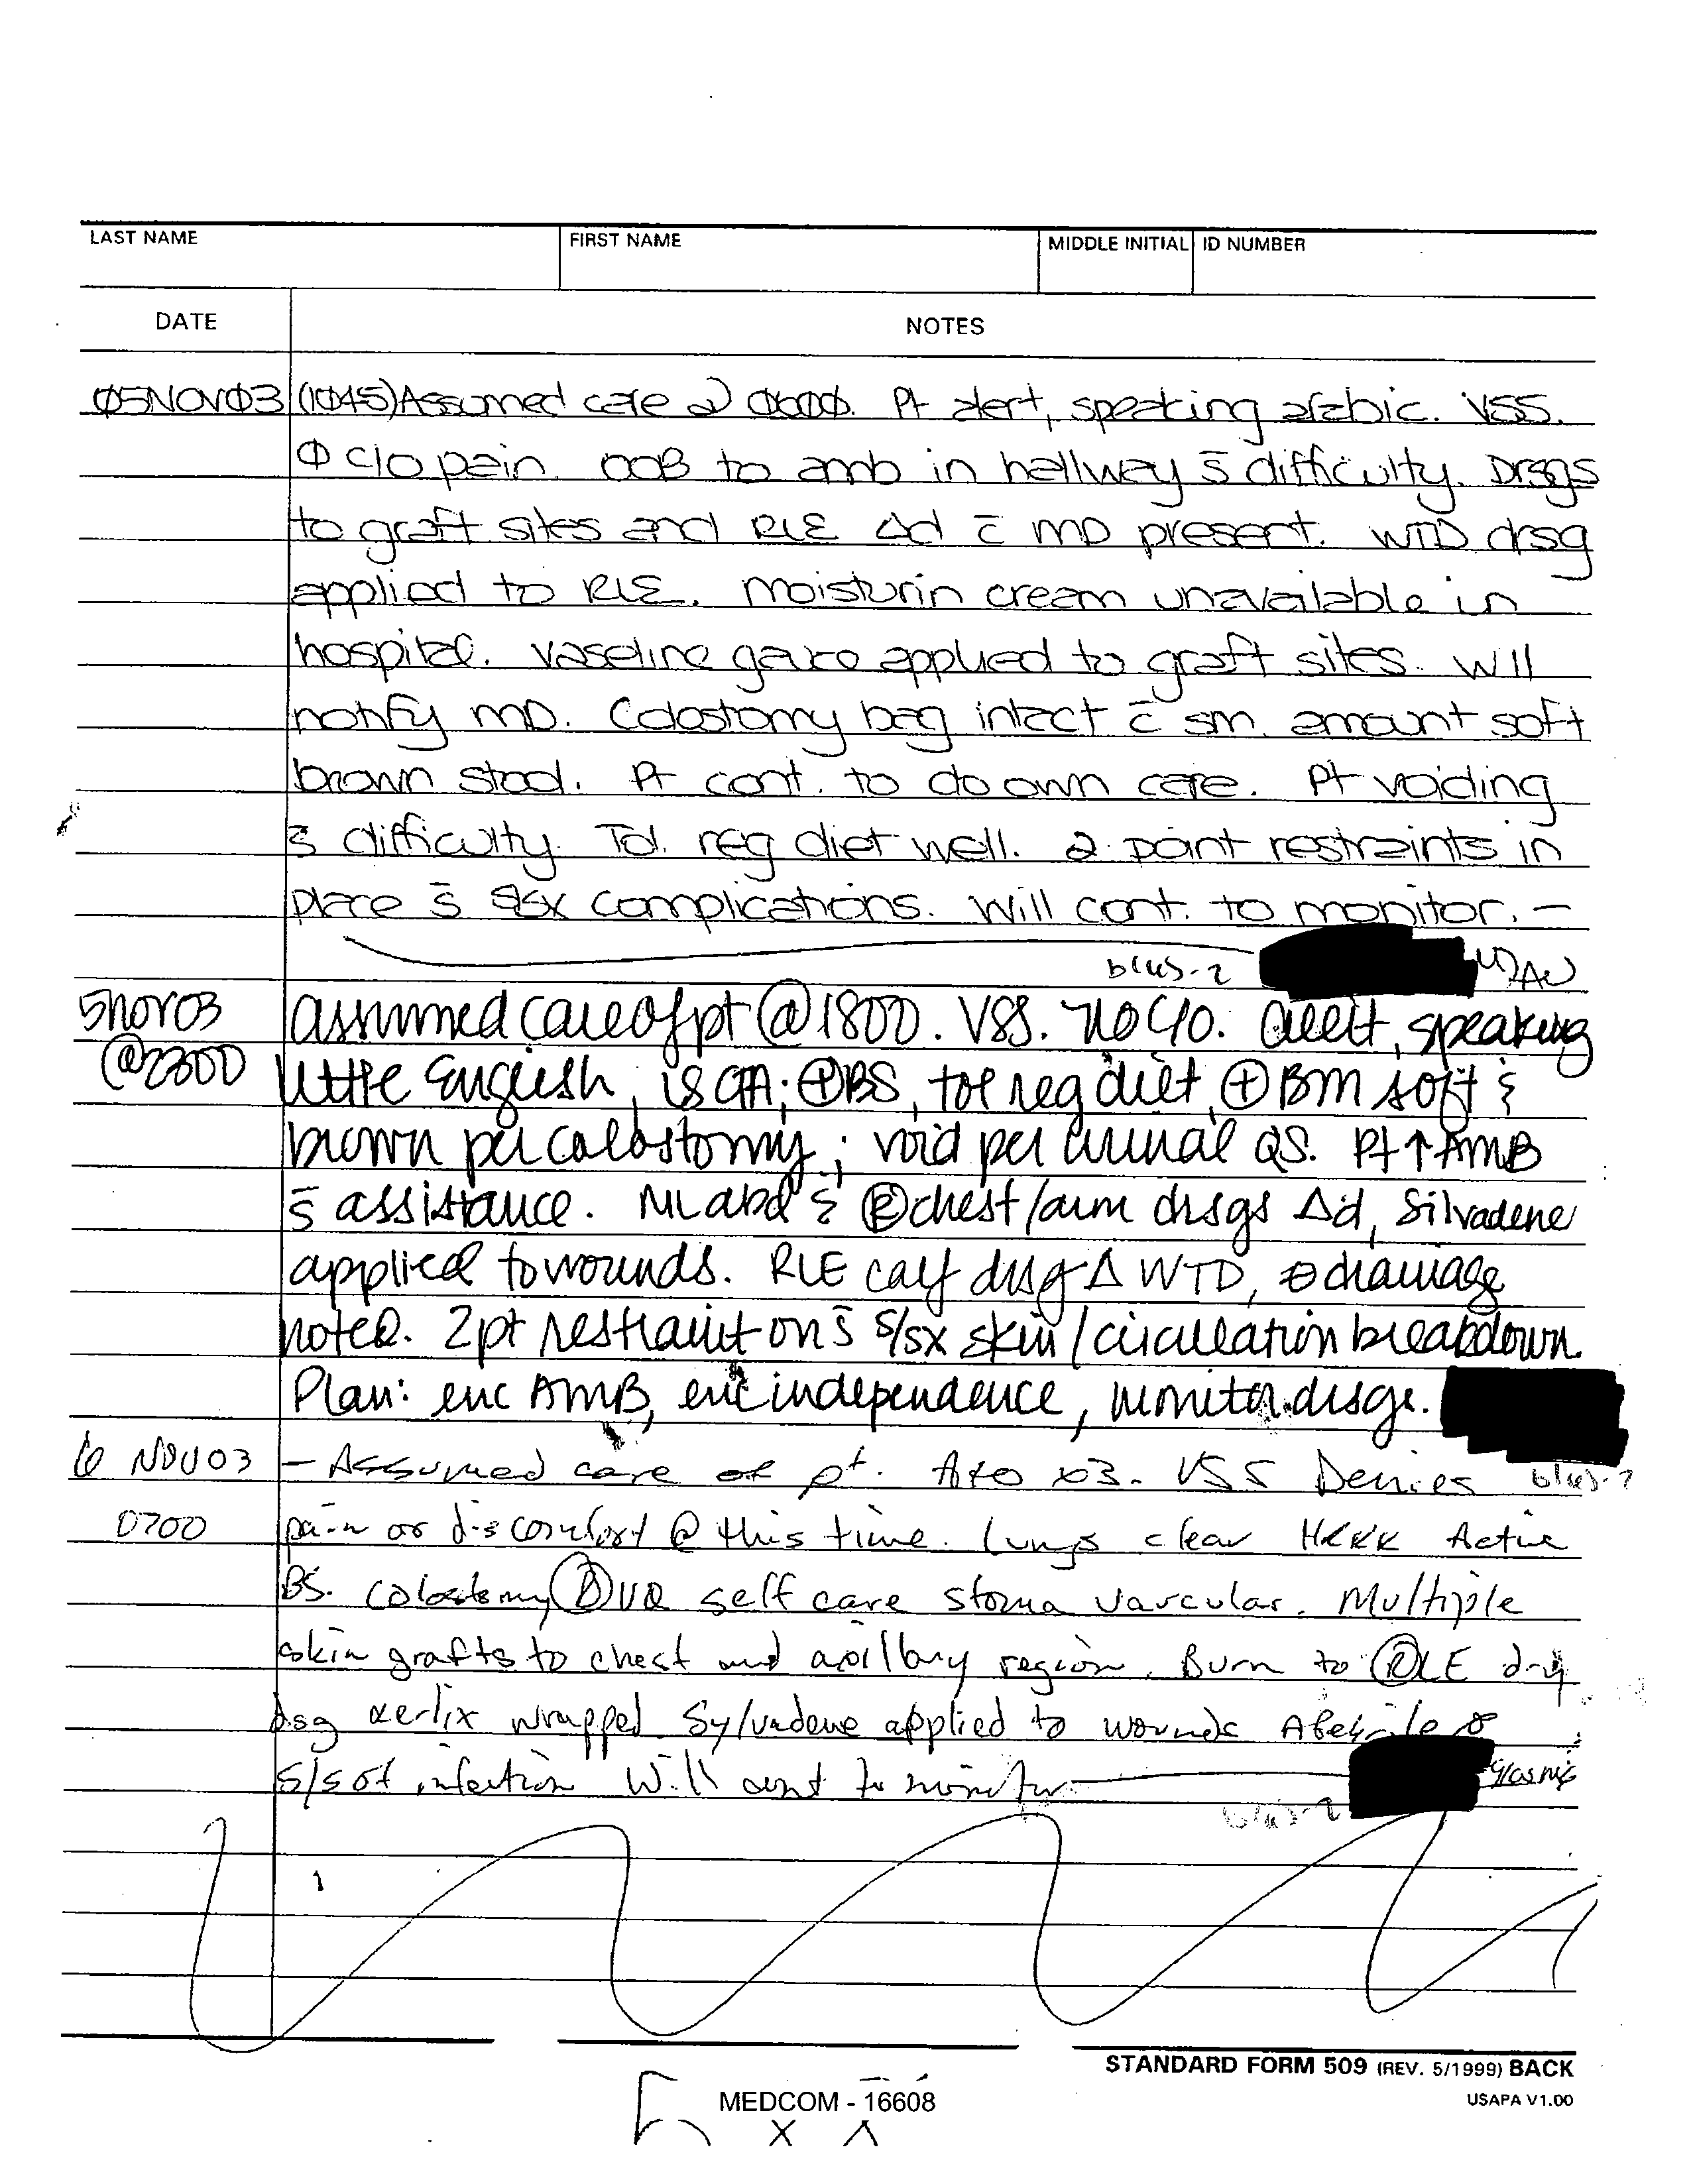 LAST NAME FIRST NAME MIDDLE INITIAL ID NUMBER
DATE NOTES
05NOV03 (1045) Assumed care @ 0600. Pt alert, speaking arabic. VSS.
Ø c/o pain. OOB to amb in hallway s̄ difficulty. Drsgs
to graft sites and RLE Δd c̄ MD present. WTD drsg
applied to RLE. Moisturin cream unavailable in
hospital. Vaseline gauze applied to graft sites. Will
notify MD. Colostomy bag intact c̄ sm. amount soft
brown stool. Pt cont. to do own care. Pt voiding
s̄ difficulty. Tol. reg diet well. 2 point restraints in
place s̄ s/sx complications. Will cont. to monitor. —
b(6)-2
5NOV03 assumed care of pt @ 1800. VSS. No c/o. alert, speaking
@2300 little English, is CTA; ⊕BS, tol reg diet, ⊕BM soft &
brown per colostomy; void per urinal QS. Pt ↑ AMB
s̄ assistance. ML abd & Ⓡ chest/arm drsgs Δd, Silvadene
applied to wounds. RLE calf drsg Δ WTD, ⊖ drainage
noted. 2pt restraint on s̄ s/sx skin/circulation breakdown.
Plan: enc AMB, enc independence, monitor drsgs.
6 NOV 03 – Assumed care of pt. A+O x3. VSS Denies b(6)-2
0700 pain or discomfort @ this time. Lungs clear HRRR Active
BS. Colostomy UQ self care stoma vascular. Multiple
skin grafts to chest and axillary region. Burn to Ⓡ LE dry
dsg kerlix wrapped. Sylvadene applied to wounds Afebrile Ø
s/s of infection Will cont to monitor
b(6)-2
STANDARD FORM 509 (REV. 5/1999) BACK
USAPA V1.00
MEDCOM - 16608